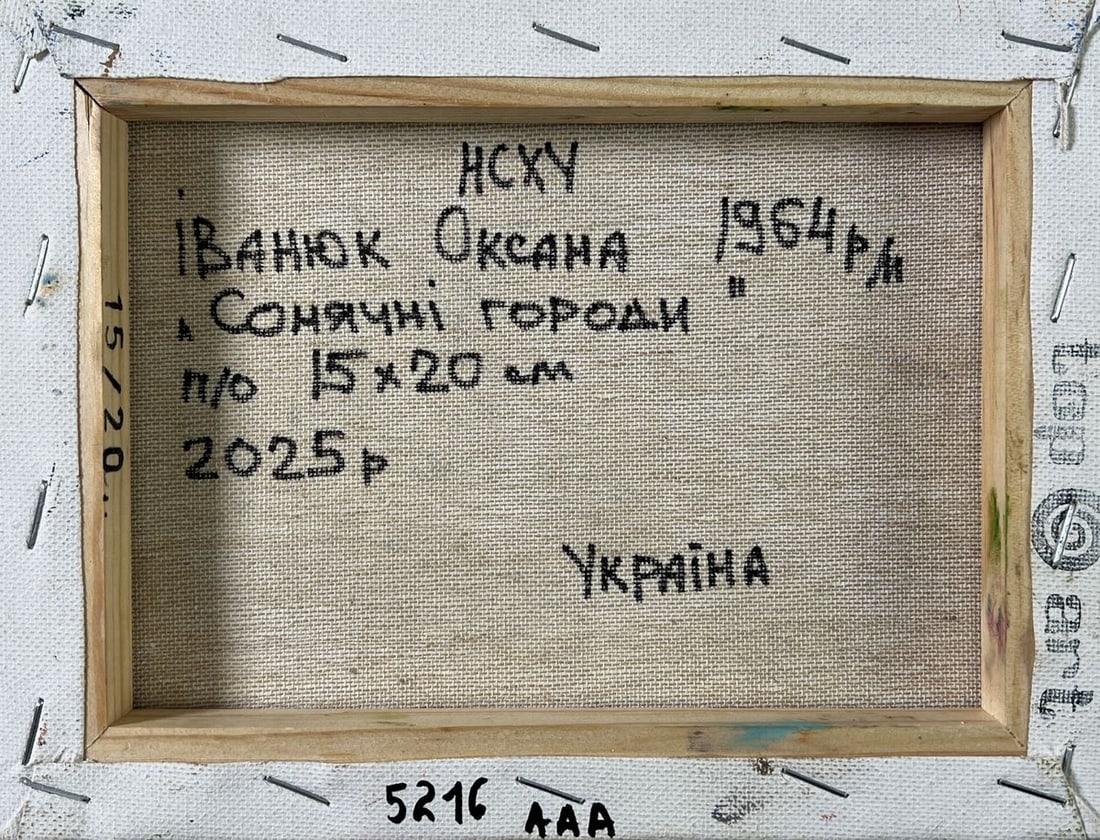 НСХУ
Іванюк Оксана 1964 р/н
„Сонячні городи"
п/о 15х20 см
2025р
Україна
15/20
top art
5216 ААА